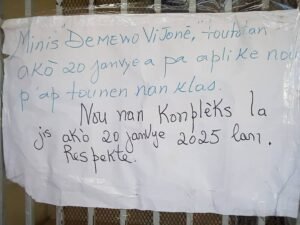 Minis "DEMEWO VIJONÈ," toutotan
akò 20 janvye a pa aplike nou
p'ap tounen nan klas.
Nou nan Konplèks la
js akò 20 janvye 2025 lan.
Respekte.